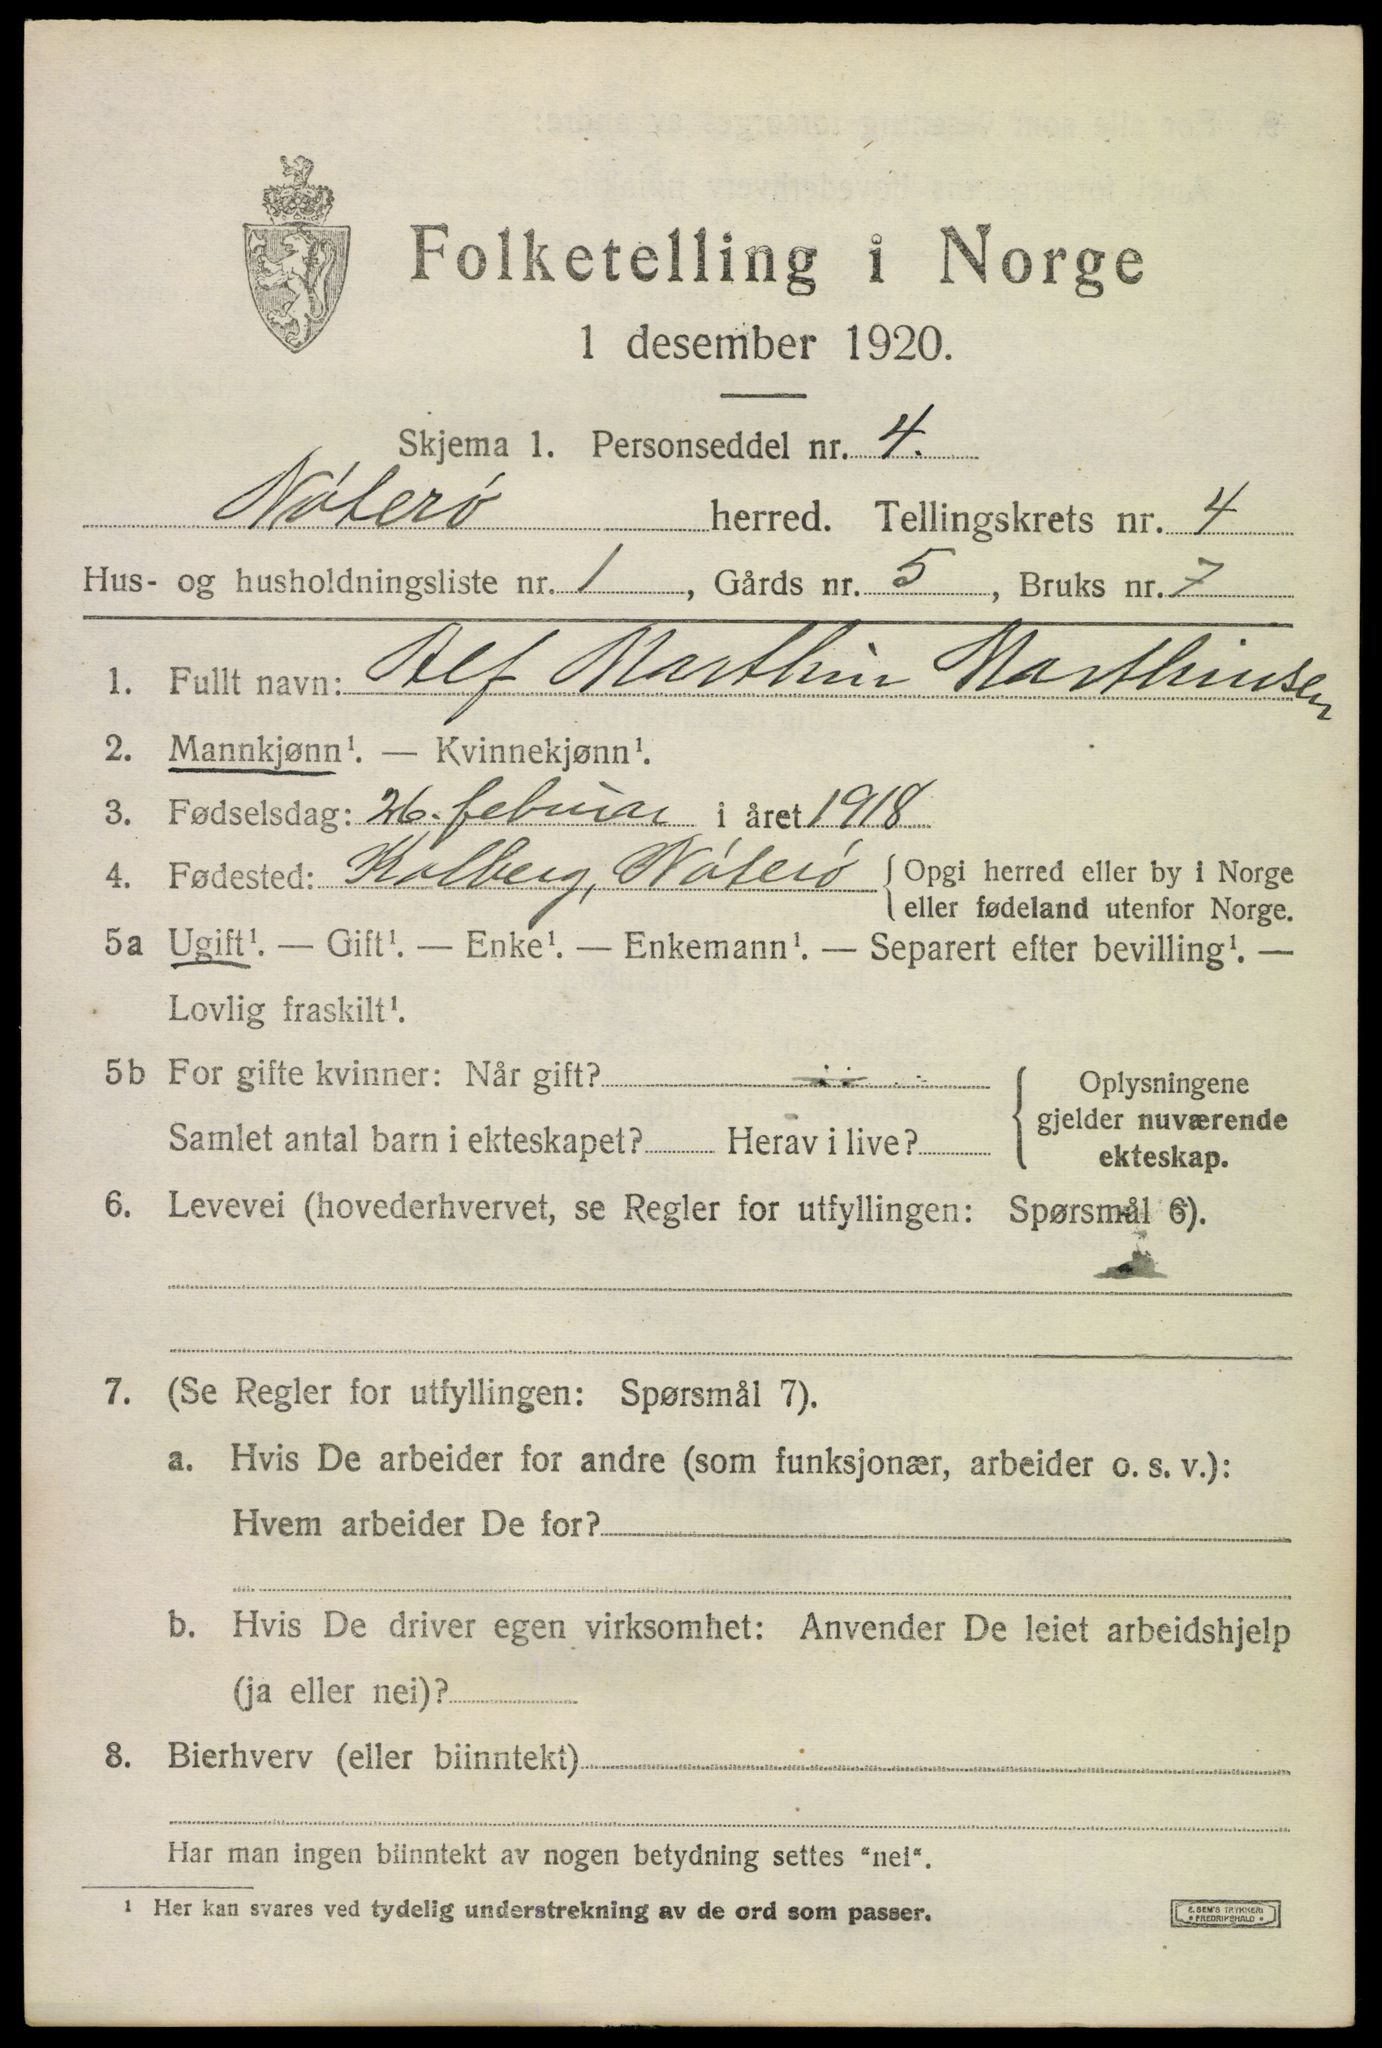 Folketelling i Norge
1 desember 1920.
Skjema 1. Personseddel nr. 4.
Nøterø herred. Tellingskrets nr. 4
Hus- og husholdningsliste nr. 1, Gårds nr. 5, Bruks nr. 7
1. Fullt navn: Alf Marthin Marthinsen
2. Mannkjønn¹. — Kvinnekjønn¹.
3. Fødselsdag: 26. februar i året 1918
4. Fødested: Kolberg, Nøterø { Opgi herred eller by i Norge
eller fødeland utenfor Norge.
5a Ugift¹. — Gift¹. — Enke¹. — Enkemann¹. — Separert efter bevilling¹. —
Lovlig fraskilt¹.
5b For gifte kvinner: Når gift?
Samlet antal barn i ekteskapet? Herav i live?
Oplysningene
gjelder nuværende
ekteskap.
6. Levevei (hovederhvervet, se Regler for utfyllingen: Spørsmål 6).
7. (Se Regler for utfyllingen: Spørsmål 7).
a. Hvis De arbeider for andre (som funksjonær, arbeider o. s. v.):
Hvem arbeider De for?
b. Hvis De driver egen virksomhet: Anvender De leiet arbeidshjelp
(ja eller nei)?
8. Bierhverv (eller biinntekt)
Har man ingen biinntekt av nogen betydning settes "nei".
¹ Her kan svares ved tydelig understrekning av de ord som passer.
E. SEM'S TRYKKERI
• FREDRIKSHALD •